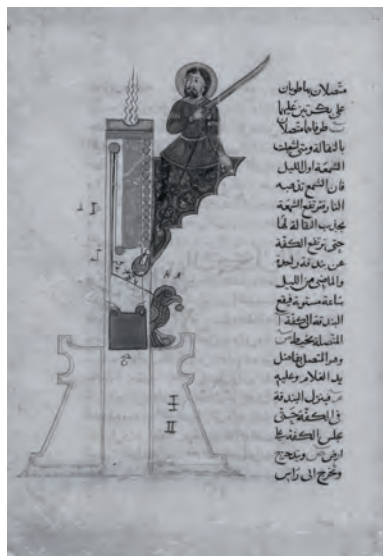 متصلان مطويان
على بكرتين عليها
طرفاهما متصلان
بالثقالة ومتى اشعلت
الشمعة اول الليل
فان الشمع تذهبه
النار وترتفع الشمعة
بجذب الثقالة لها
حتى ترتفع الكفة
عن بندقة واحدة
والماضي من الليل
ساعة مستوية فيقع
البندقة الى الكفة
المتصلة بخيط س
وهو المتصل بفاصل
يد الغلام وعليه
س فينزل البندقة
في الكفة حتى
على الكفة على
ارض ويتدحرج
وتخرج الى راس